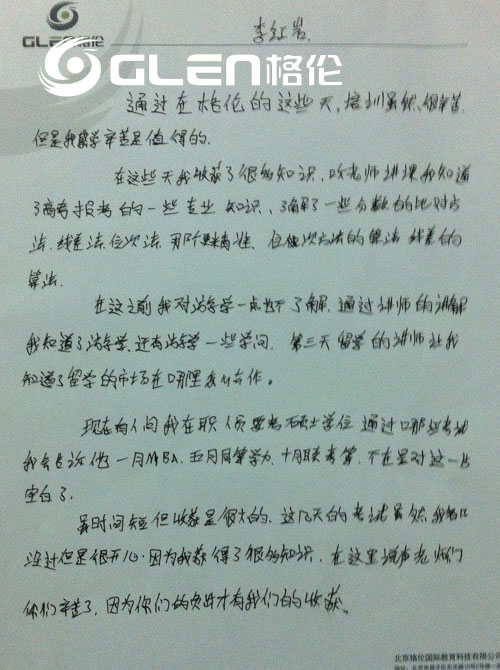 GLEN格伦
李红岩
GLEN格伦
通过在格伦的这些天,培训虽然很辛苦,
但是我觉辛苦是值得的.
在这些天我收获了很多知识,听老师讲课我知道
了高考报考的一些专业知识,了解了一些分数的比对方
法.线差法.位次法.那个更精准、位次方法的算法 线差的
算法.
在这之前我对 学一点也不了解.通过讲师的讲解
我知道了 学,还有 学一些学问.第三天留学的讲师让我
知道了留学的市场在哪里怎么合作。
现在有人问我在职人员要考硕士学位 通过哪些考试
我会告诉他 一月MBA.五月同等学力.十月联考等.不在是对这一片
空白了.
虽时间短但收获是很大的、这几天的考试虽然我
没过但是很开心.因为我获得了很多知识.在这里说声老师们
你们辛苦了,因为你们的付出才有我们的收获、
北京格伦国际教育科技有限公司